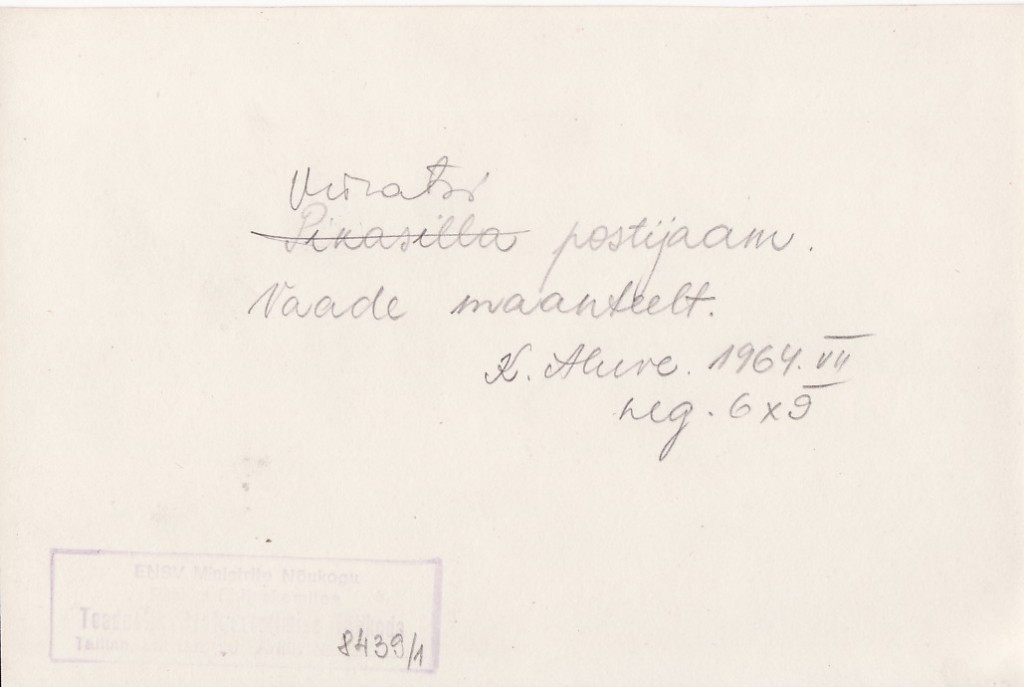 Viiratsi
Pikasilla postijaam.
Vaade maanteelt.
K. Aluve. 1964. VII
neg. 6x9
ENSV Ministrite Nõukogu
Tallinn
8439/1